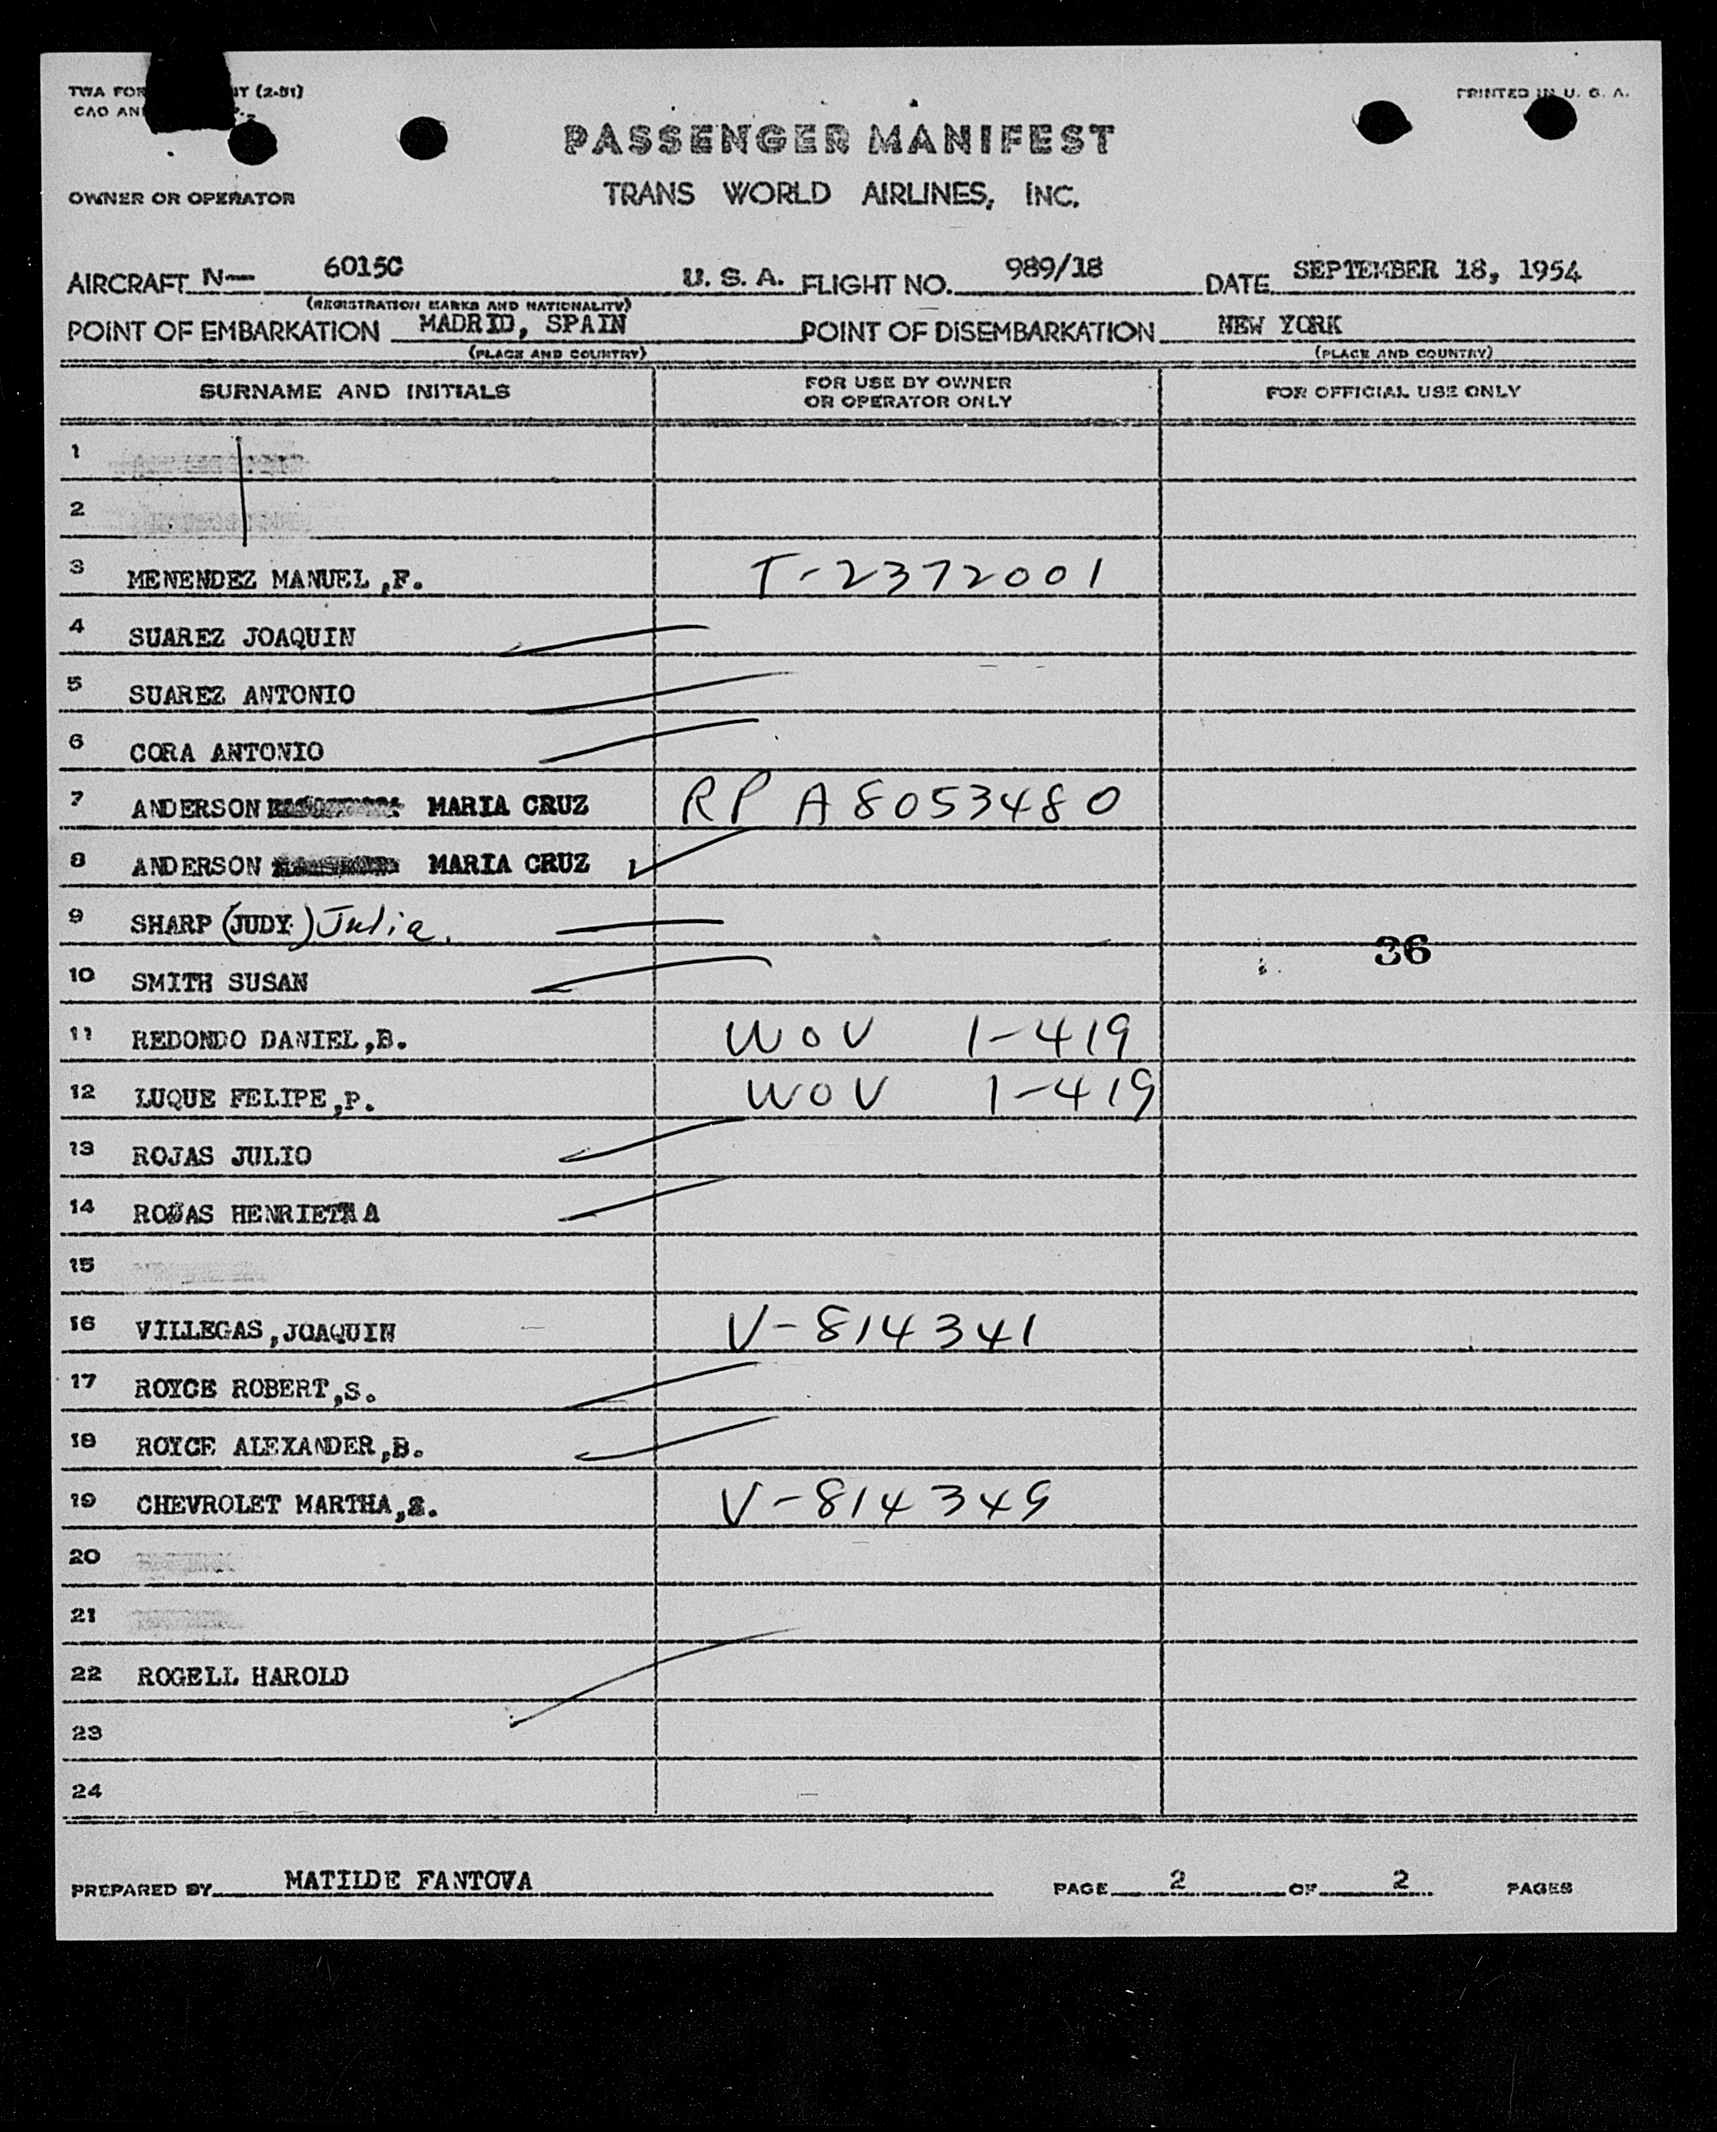 TWA FOR NT (2-51)
PRINTED IN U. S. A.
CAO AN
PASSENGER MANIFEST
OWNER OR OPERATOR
TRANS WORLD AIRLINES, INC.
AIRCRAFT N— 6015C U. S. A. FLIGHT NO. 989/18 DATE SEPTEMBER 18, 1954
(REGISTRATION MARKS AND NATIONALITY)
POINT OF EMBARKATION MADRID, SPAIN POINT OF DISEMBARKATION NEW YORK
(PLACE AND COUNTRY) (PLACE AND COUNTRY)
SURNAME AND INITIALS FOR USE BY OWNER OR OPERATOR ONLY FOR OFFICIAL USE ONLY
1
2
3 MENENDEZ MANUEL,F. T-2372001
4 SUAREZ JOAQUIN
5 SUAREZ ANTONIO
6 CORA ANTONIO
7 ANDERSON MARIA CRUZ RP A8053480
8 ANDERSON MARIA CRUZ
9 SHARP (JUDY) Julia.
36
10 SMITH SUSAN
11 REDONDO DANIEL,B. WOV 1-419
12 LUQUE FELIPE,P. WOV 1-419
13 ROJAS JULIO
14 ROJAS HENRIETTA
15
16 VILLEGAS,JOAQUIN V-814341
17 ROYCE ROBERT,S.
18 ROYCE ALEXANDER,B.
19 CHEVROLET MARTHA,S. V-814349
20
21
22 ROGELL HAROLD
23
24
PREPARED BY MATILDE FANTOVA PAGE 2 OF 2 PAGES